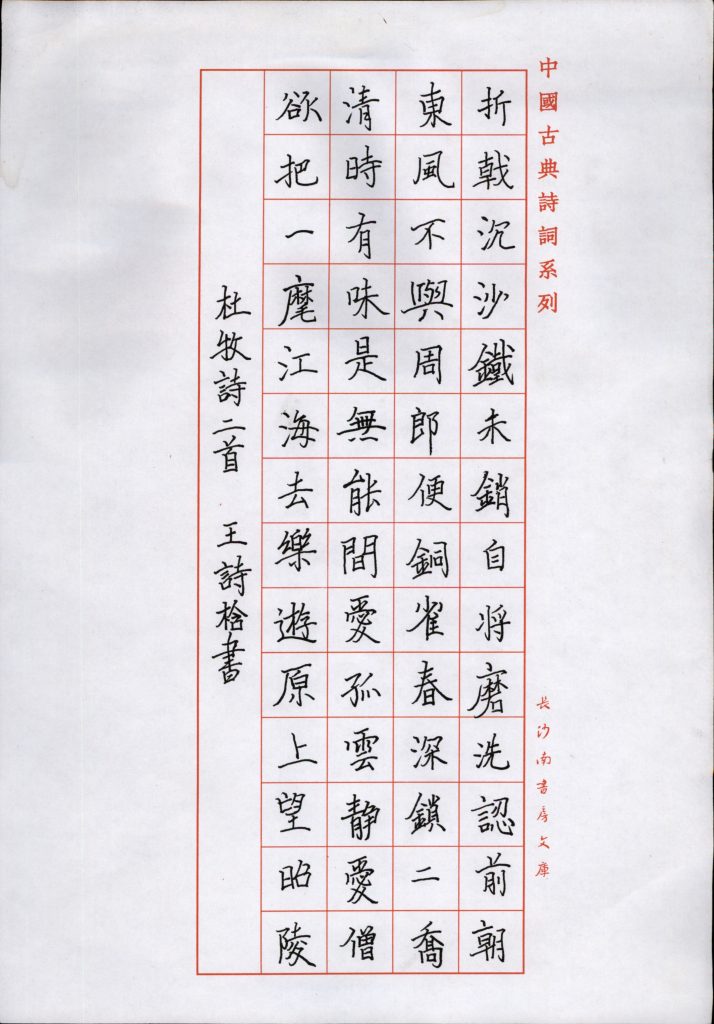 中國古典詩詞系列
折戟沉沙鐵未銷自將磨洗認前朝
東風不與周郎便銅雀春深鎖二喬
清時有味是無能閒愛孤雲靜愛僧
欲把一麾江海去樂遊原上望昭陵
杜牧詩二首 王詩榕書
長沙南書房文庫